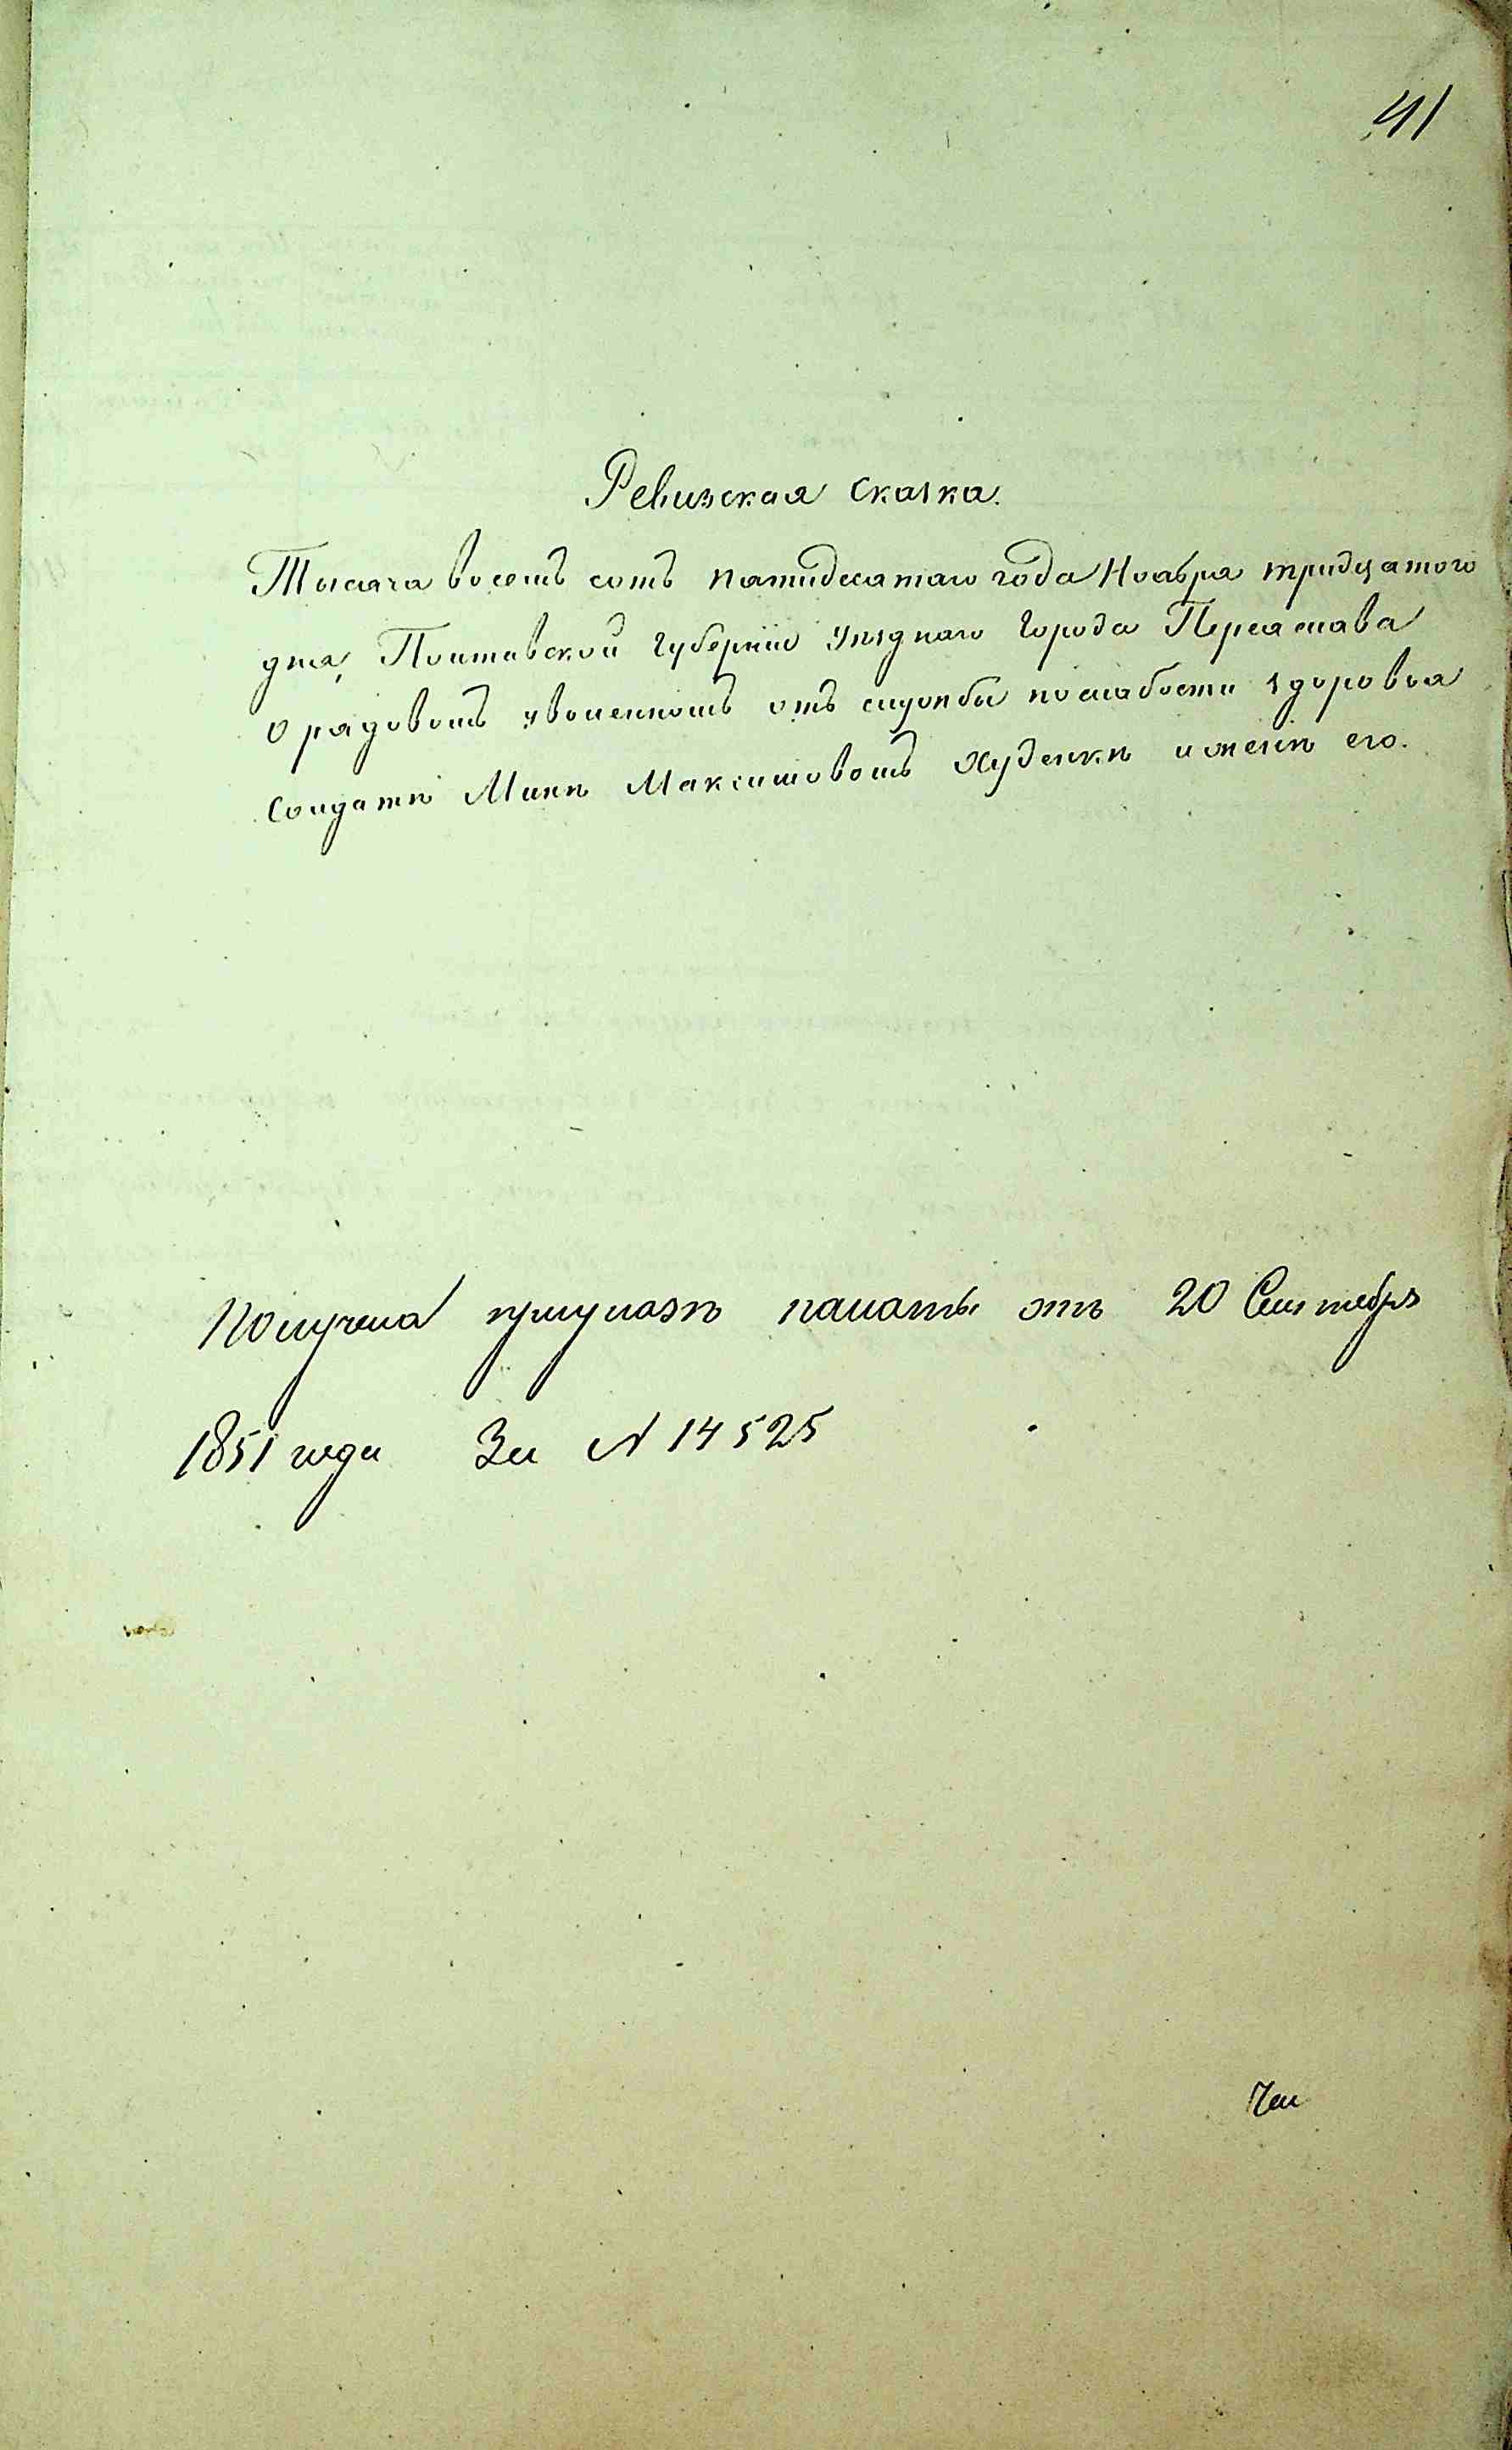 41
Ревизская сказка.
Тысяча восемь сотъ пятидесятаго года Ноября тридцатого
дня, Полтавской губерніи уѣзднаго города Переяслава
о рядовомъ уволенномъ отъ службы послабости здоровья
солдатѣ Минѣ Максимовомъ Худенкѣ и женѣ его.
Получена при указѣ палаты отъ 20 Сентября
1851 года За N 14525